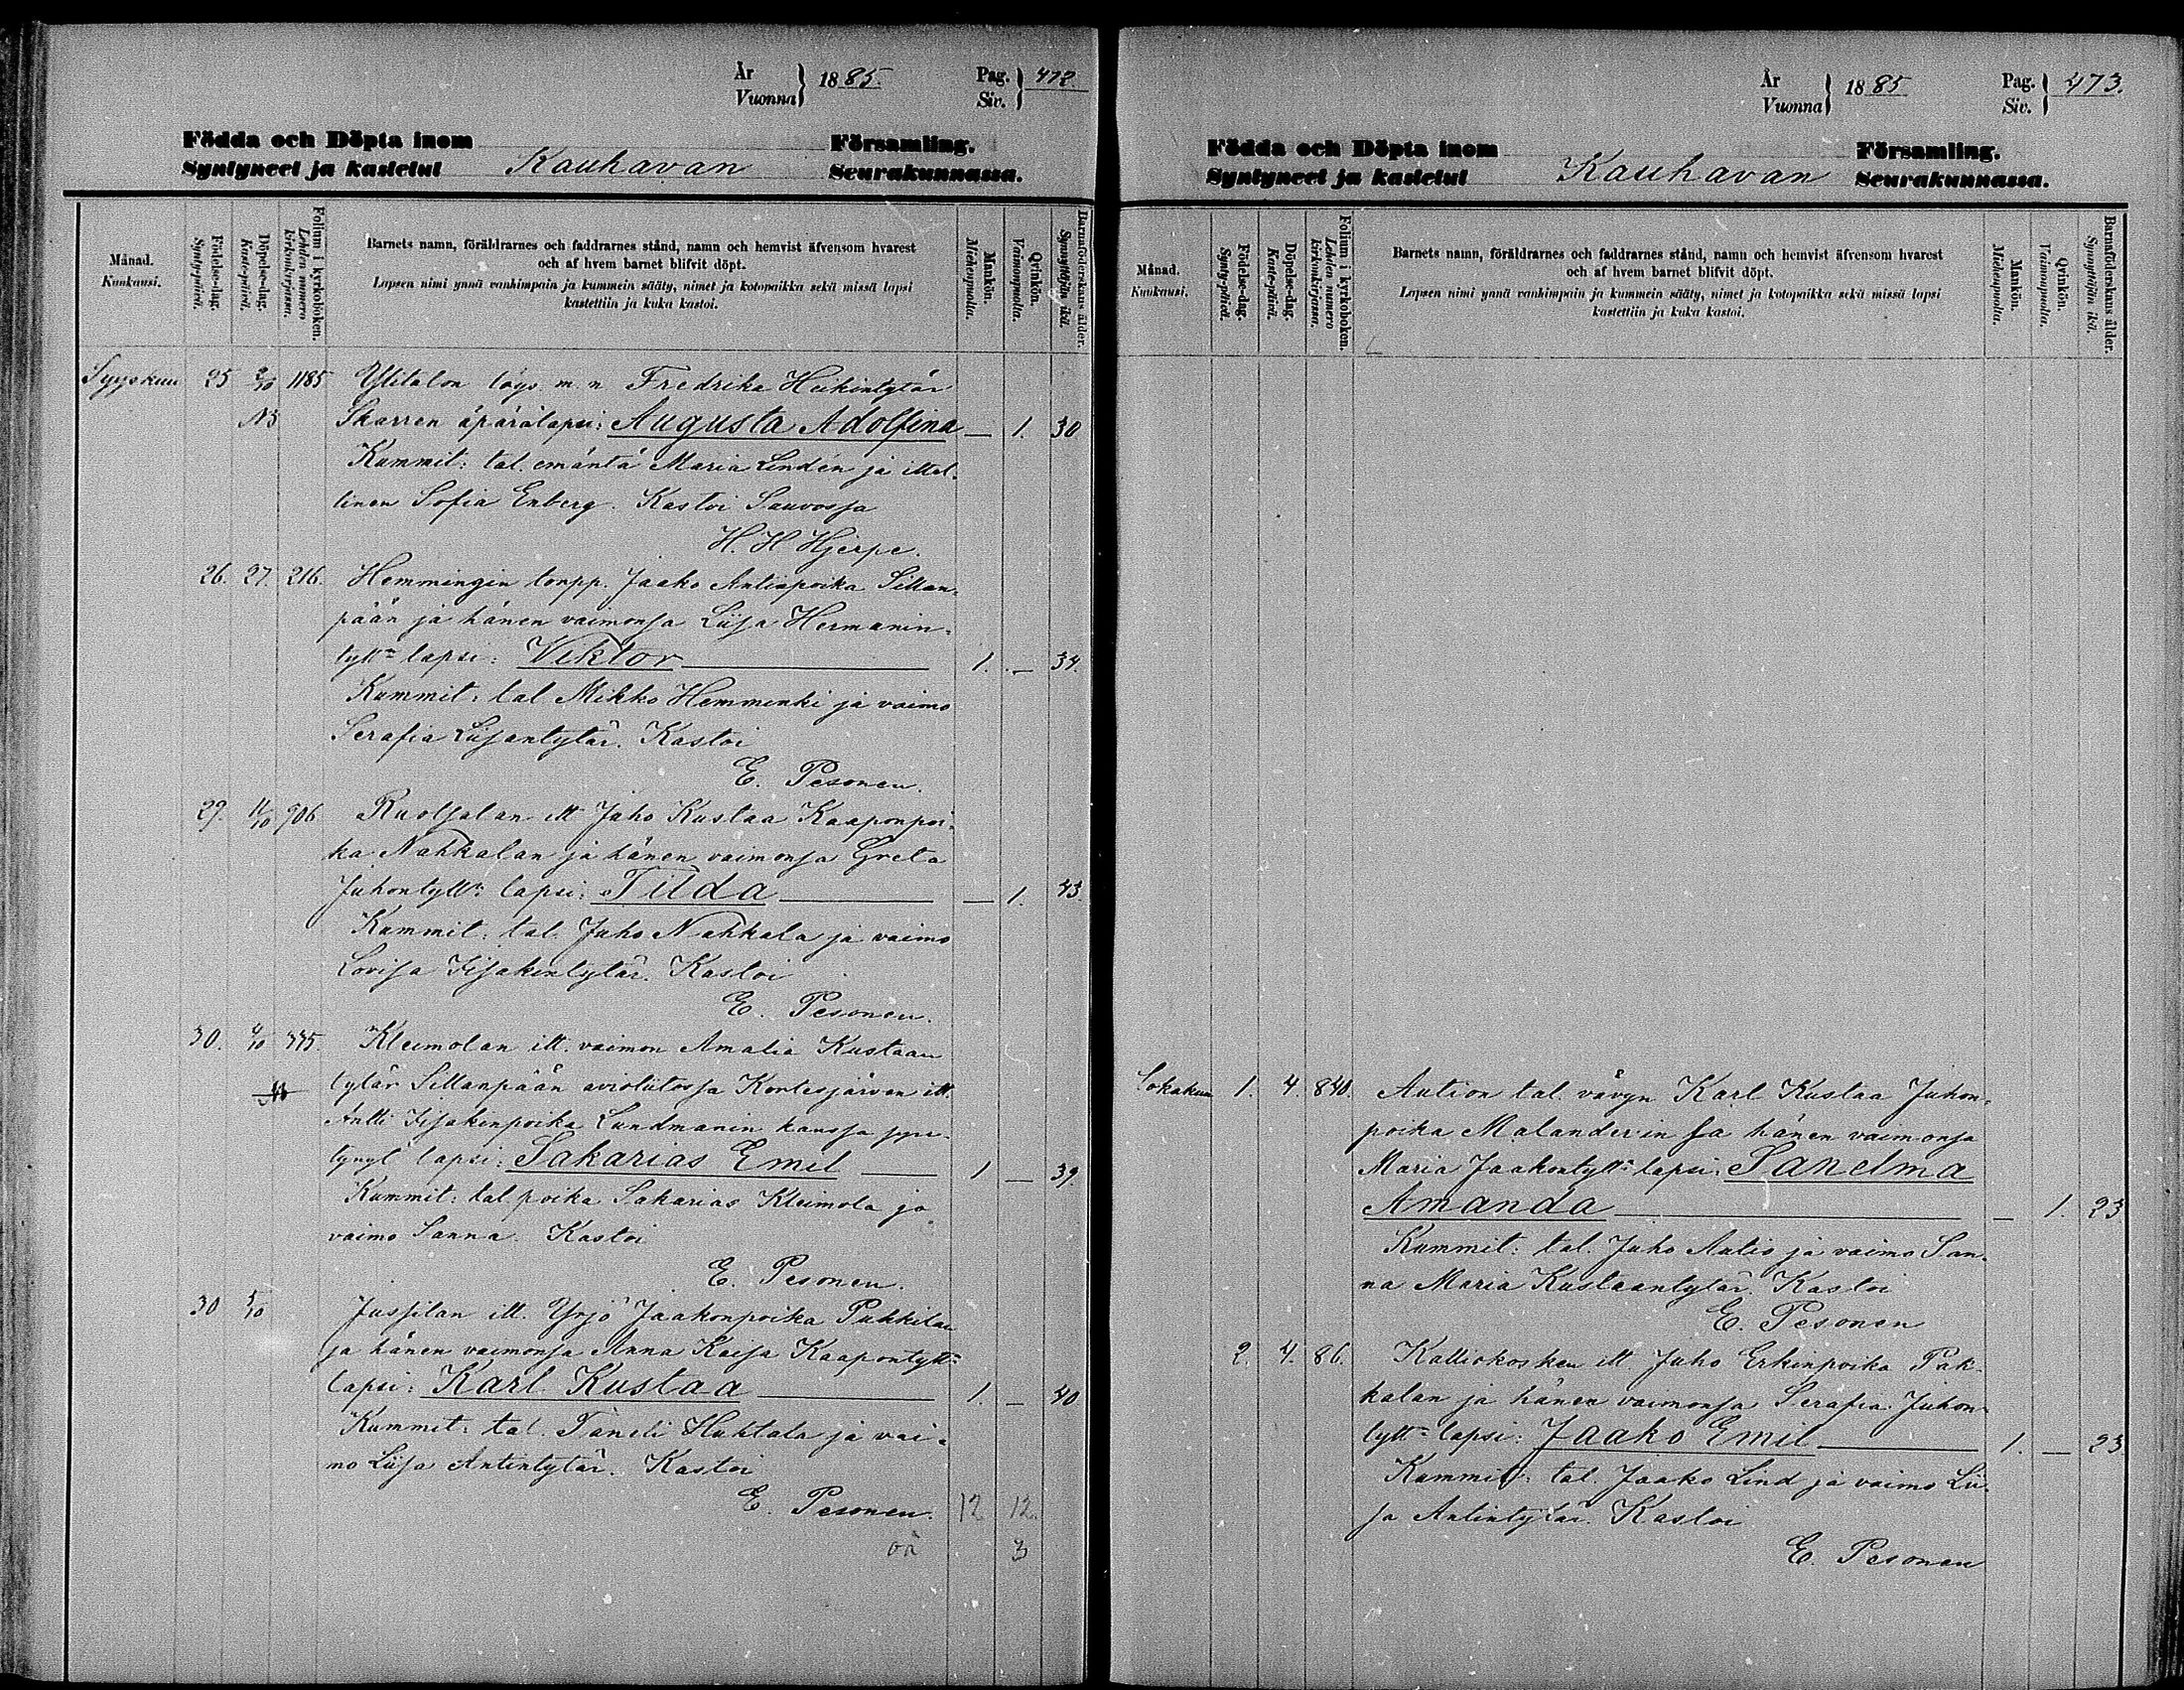 År
Vuonna } 1885.
Pag.
Siv. } 472.
Födda och Döpta inom Församling.
Syntyneet ja kastetut Kauhavan Seurakunnassa.
Månad.
Kuukausi.
Födelse-dag.
Synty-päivä.
Döpelse-dag.
Kaste-päivä.
Folium i kyrkoboken.
Lehden numero
kirkonkirjassa.
Barnets namn, föräldrarnes och faddrarnes stånd, namn och hemvist äfvensom hvarest
och af hvem barnet blifvit döpt.
Lapsen nimi ynnä vanhimpain ja kummein sääty, nimet ja kotopaikka sekä missä lapsi
kastettiin ja kuka kastoi.
Mankön.
Miehenpuolia.
Qvinkön.
Vaimonpuolia.
Barnaföderskans ålder.
Synnyttäjän ikä.
Syyskuu 25 2/10 1185 Ylitalon löys m n Fredrika Heikintytär
NB Skarren äpärälapsi: Augusta Adolfina — 1. 30
Kummit: tal. emäntä Maria Lindén ja ittel-
linen Sofia Enberg. Kastoi Sauvossa
H. H Hjerpe.
26. 27. 216. Hemmingin torpp. Jaako Antinpoika Sillan-
pään ja hänen vaimonsa Liisa Hermanin-
tytt:n lapsi: Viktor 1. — 34.
Kummit: tal Mikko Hemminki ja vaimo
Serafia Liisantytär. Kastoi
E. Pesonen.
29. 11/10 906 Ruotsalan itt Juho Kustaa Kaaponpoi-
ka Nahkalan ja hänen vaimonsa Greta
Juhontytt:n lapsi: Tilda — 1. 43.
Kummit: tal. Juho Nahkala ja vaimo
Lovisa Iisakintytär. Kastoi
E. Pesonen.
30. 4/10 335. Kleimolan itt. vaimon Amalia Kustaan
NB tytär Sillanpään avioliitossa Kortesjärven itt.
Antti Iisakinpoika Lundmanin kanssa syn-
tynyt lapsi: Sakarias Emil 1 — 39
Kummit: tal. poika Sakarias Kleimola ja
vaimo Sanna. Kastoi
E. Pesonen.
30 5/10 Jussilan itt. Yrjö Jaakonpoika Puhkilan
ja hänen vaimonsa Anna Kaisa Kaapontytt:n
lapsi: Karl Kustaa 1. — 40
Kummit: tal. Taneli Huhtala ja vai-
mo Liisa Antintytär. Kastoi
E. Pesonen. 12 12.
3
År
Vuonna } 1885
Pag.
Siv. } 473.
Födda och Döpta inom Församling.
Syntyneet ja kastetut Kauhavan Seurakunnassa.
Månad.
Kuukausi.
Födelse-dag.
Synty-päivä.
Döpelse-dag.
Kaste-päivä.
Folium i kyrkoboken.
Lehden numero
kirkonkirjassa.
Barnets namn, föräldrarnes och faddrarnes stånd, namn och hemvist äfvensom hvarest
och af hvem barnet blifvit döpt.
Lapsen nimi ynnä vanhimpain ja kummein sääty, nimet ja kotopaikka sekä missä lapsi
kastettiin ja kuka kastoi.
Mankön.
Miehenpuolia.
Qvinkön.
Vaimonpuolia.
Barnaföderskans ålder.
Synnyttäjän ikä.
Lokakuu 1. 4. 840. Aution tal. vävyn Karl Kustaa Juhon-
poika Malanderin ja hänen vaimonsa
Maria Jaakontytt:n lapsi: Sanelma
Amanda — 1. 23
Kummit: tal. Juho Autio ja vaimo San-
na Maria Kustaantytär. Kastoi
E. Pesonen
2. 4. 86. Kalliokosken itt. Juho Erkinpoika Pak-
kalan ja hänen vaimonsa Serafia Juhon-
tytt:n lapsi: Jaako Emil 1. — 23
Kummit: tal. Jaako Lind ja vaimo Lii-
sa Antintytär. Kastoi
E. Pesonen